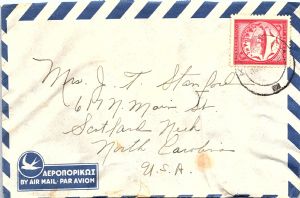 Mrs. J. T. Stanford
617 N. Main St.
Scotland Neck
North Carolina
U.S.A.
ΑΕΡΟΠΟΡΙΚΩΣ
BY AIR MAIL·PAR AVION